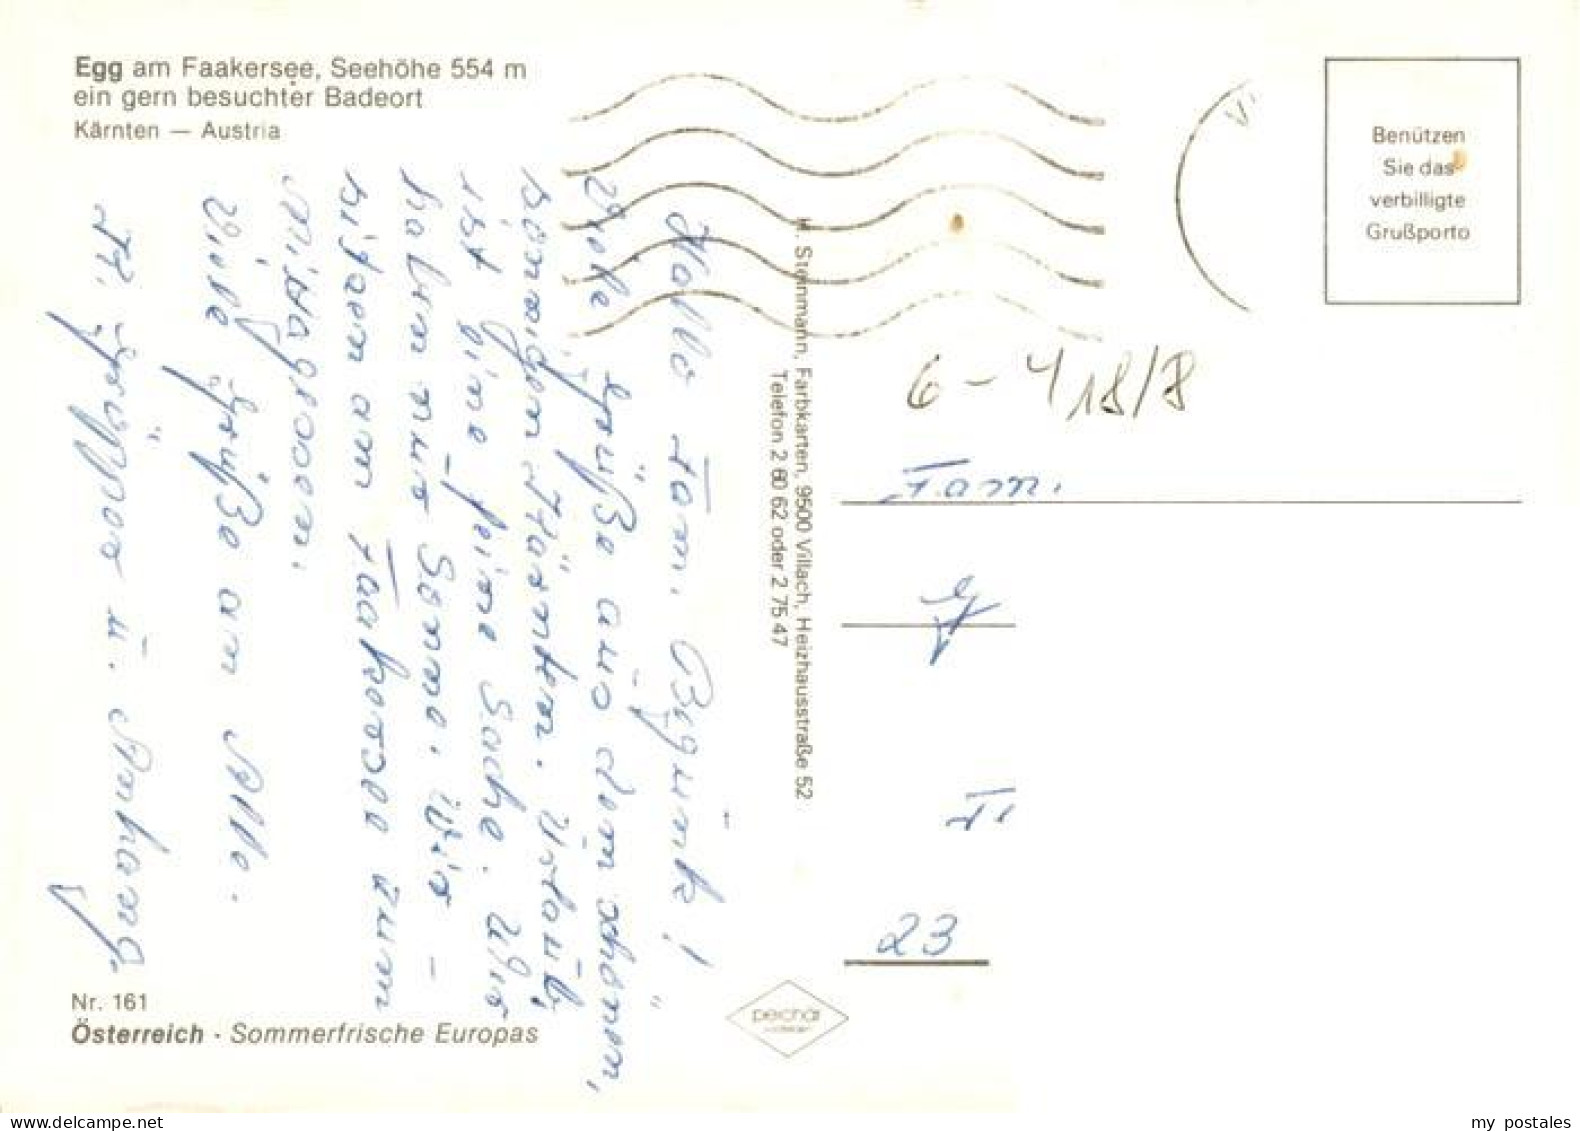 Egg am Faakersee, Seehöhe 554 m
ein gern besuchter Badeort
Kärnten — Austria
Benützen
Sie das
verbilligte
Grußporto
Hallo Fam.
Viele Grüße aus dem schönen,
sonnigen Kärnten. Urlaub,
ist eine feine Sache. Wir
haben nur Sonne. Wir
sitzen am Faakersee zum
Mittagessen.
Viele Grüße an Alle.
u. Anhang.
H. Steinmann, Farbkarten, 9500 Villach, Heizhausstraße 52
Telefon 2 60 62 oder 2 75 47
6 - 4 18/8
Fam.
23
Nr. 161
Österreich · Sommerfrische Europas
peichär
my postales